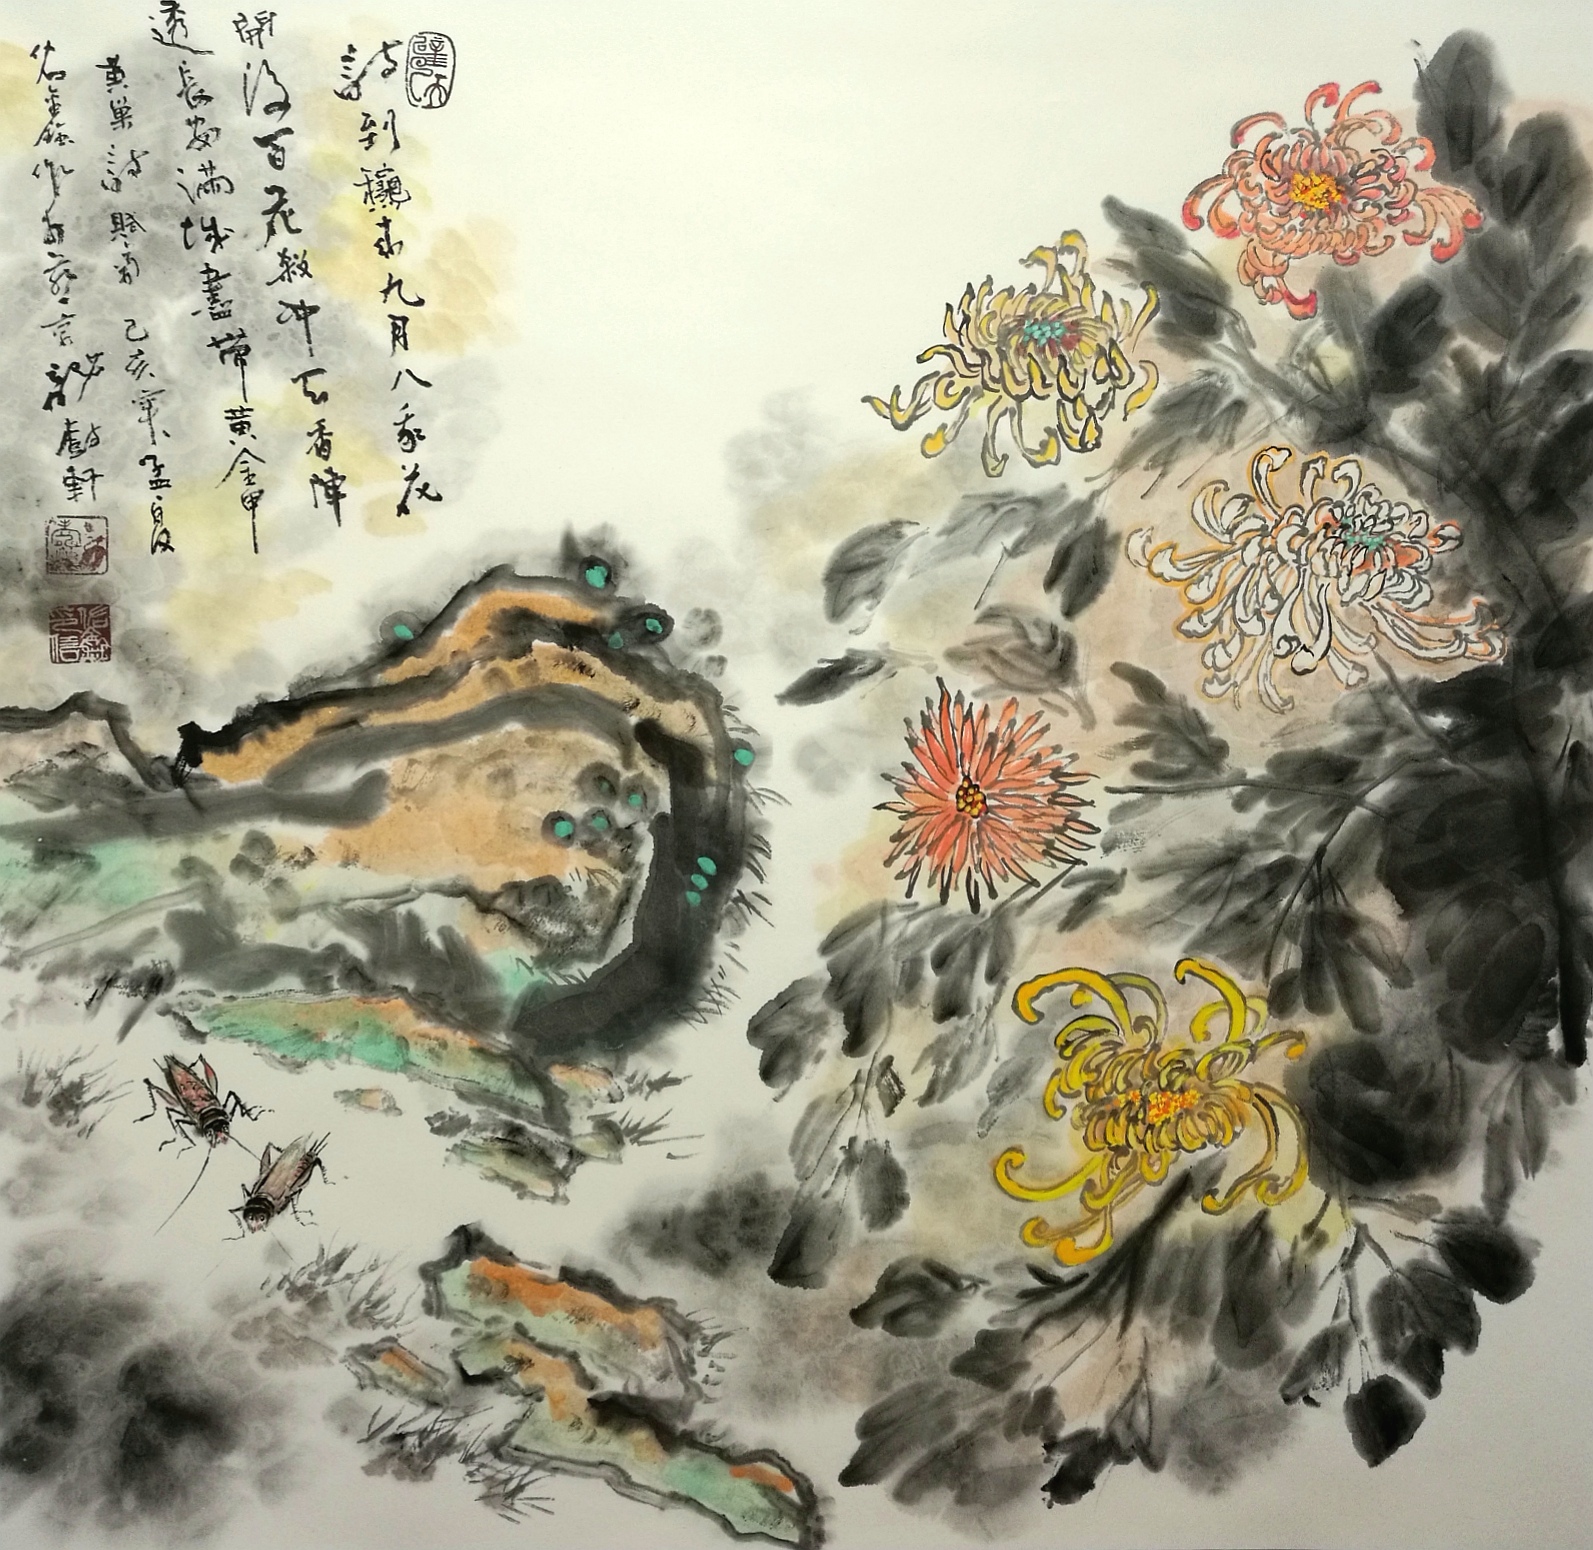 詩到穐來九月八我花
開後百花殺冲天香陣
透長安滿城盡帶黃金甲
黃巢詩賦菊 己亥年孟夏
作於 京 軒